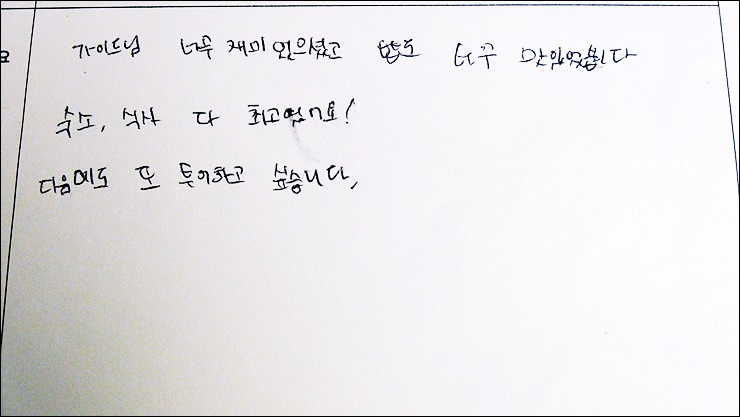 가이드님 너무 재미있으셨고 밥도 너무 맛있었습니다
숙소, 식사 다 최고였어요!
다음에도 또 투어하고 싶습니다,
요